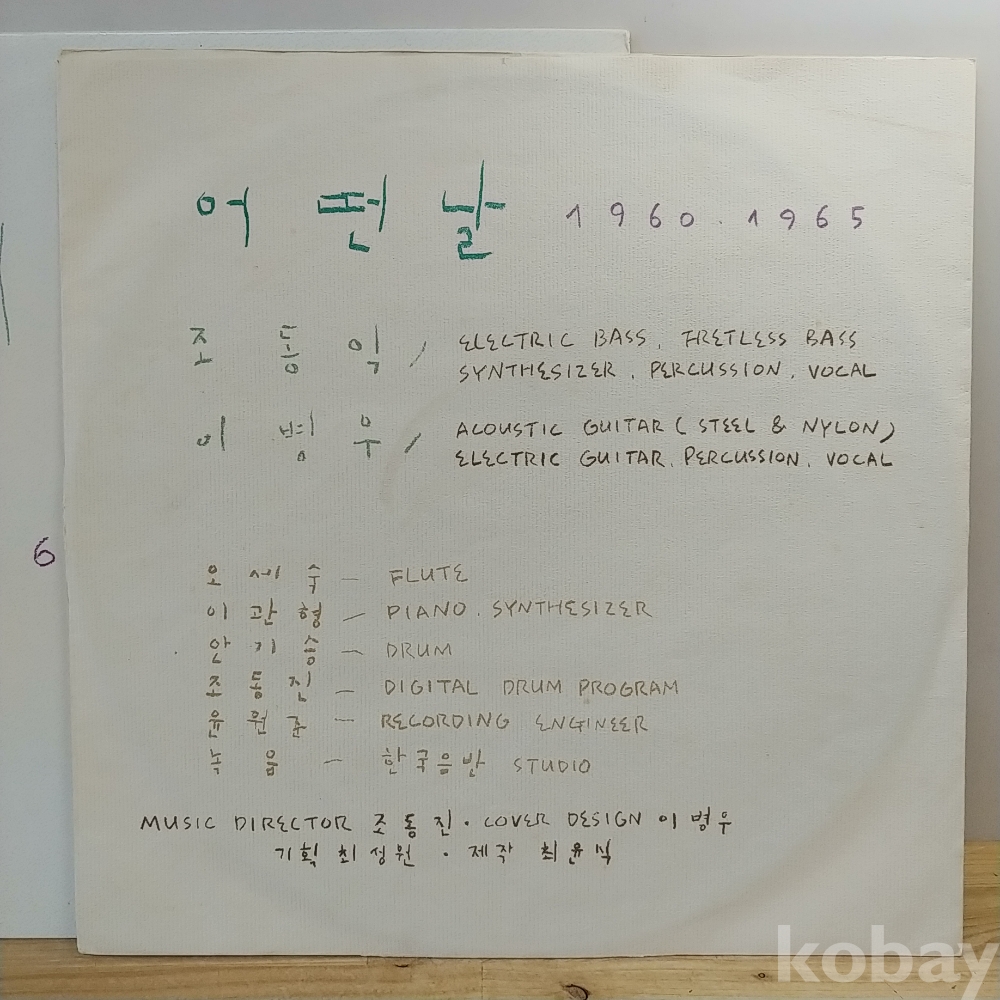 어떤날 1960.1965
조동익 / ELECTRIC BASS. FRETLESS BASS
SYNTHESIZER. PERCUSSION. VOCAL
이병우 / ACOUSTIC GUITAR (STEEL & NYLON)
ELECTRIC GUITAR. PERCUSSION. VOCAL
6
오세숙 - FLUTE
이관형 - PIANO. SYNTHESIZER
안기승 - DRUM
조동진 - DIGITAL DRUM PROGRAM
윤원준 - RECORDING ENGINEER
녹음 - 한국음반 STUDIO
MUSIC DIRECTOR 조동진 · COVER DESIGN 이병우
기획 최성원 · 제작 최윤식
kobay